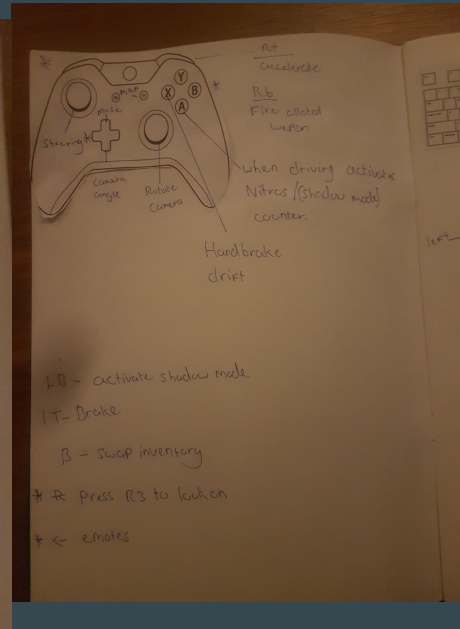 Rt
accelerate
Rb
Fire
wepon
Y
X
B
A
map
music
Steering *
Camera
angle
Rotate
Camera
when driving activates
Nitros /(shadow mode)
counter.
Handbrake
drift
LB - activate shadow mode
LT- Brake
B - swap inventory
* Press R3 to lock on
* ← emotes
left